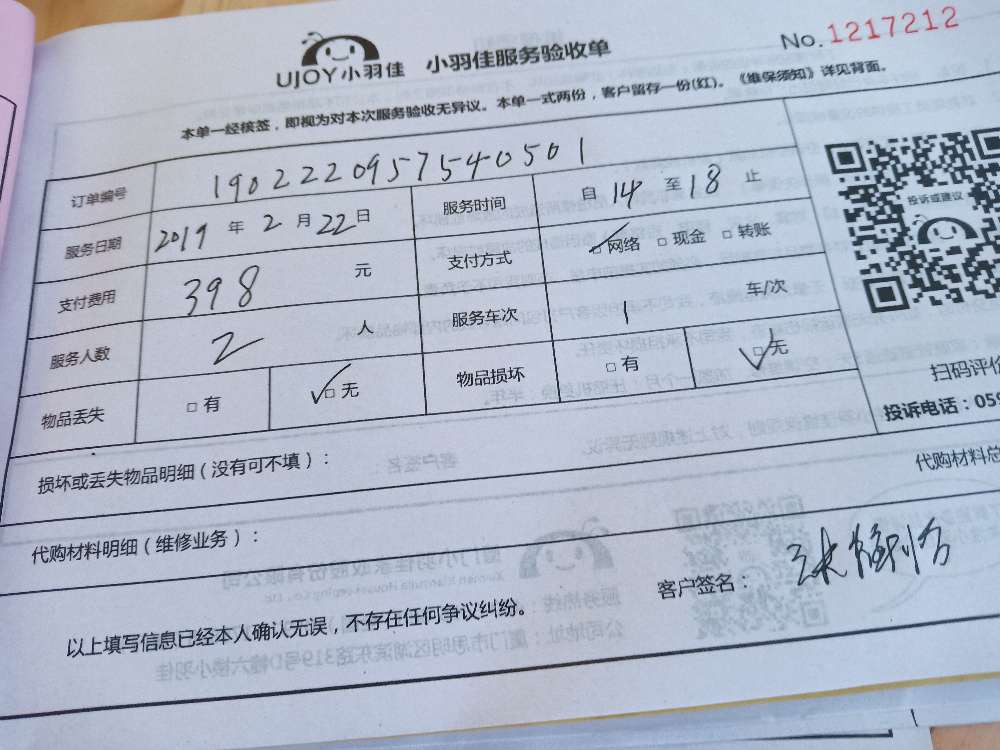 UJOY小羽佳 小羽佳服务验收单 No.1217212
本单一经核签，即视为对本次服务验收无异议。本单一式两份，客户留存一份(红)。《维保须知》详见背面。
订单编号 1902220957540501
服务日期 2019 年 2 月 22 日 服务时间 自 14 至 18 止
支付费用 398 元 支付方式 ☑网络 □现金 □转账
服务人数 2 人 服务车次 1 车/次
物品丢失 □有 ☑无 物品损坏 □有 ☑无
投诉或建议
扫码评价
投诉电话：059
损坏或丢失物品明细（没有可不填）：
代购材料总
代购材料明细（维修业务）：
客户签名：
以上填写信息已经本人确认无误，不存在任何争议纠纷。